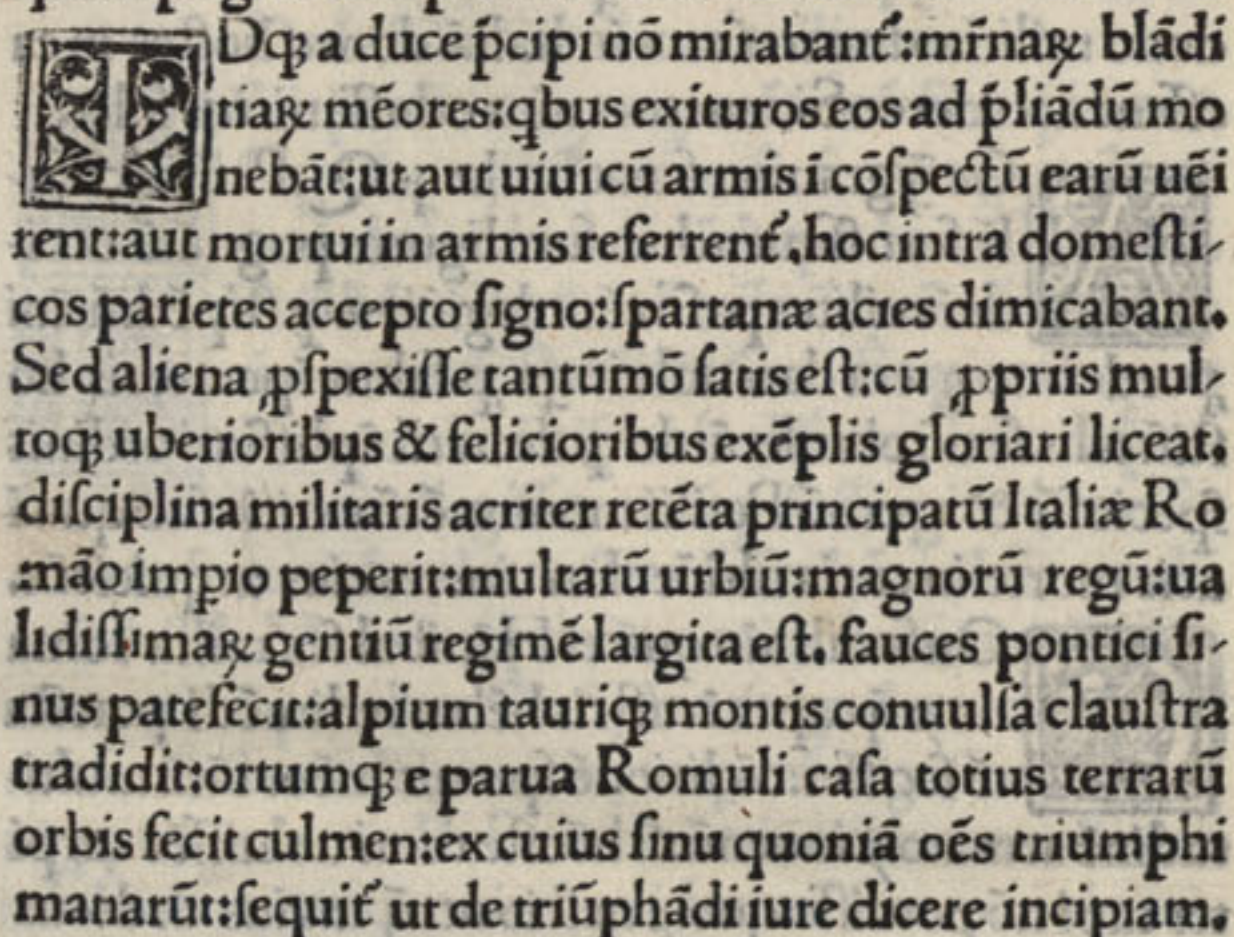 IDqꝫ a duce p̄cipi nō mirabant᷑:mr̄naꝝ blādi
tiaꝝ mēores:qbus exituros eos ad p̄liādū mo
nebāt:ut aut uiui cū armis ī cōſpectū earū uēi
rent:aut mortui in armis referrent᷑.hoc intra domeſti-
cos parietes accepto ſigno:ſpartanæ acies dimicabant.
Sed aliena ꝓſpexiſſe tantūmō ſatis eſt:cū ꝓpriis mul-
toqꝫ uberioribus & felicioribus exēplis gloriari liceat.
diſciplina militaris acriter retēta principatū Italiæ Ro
māo impio peperit:multarū urbiū:magnorū regū:ua
lidiſſimaꝝ gentiū regimē largita eſt. fauces pontici ſi-
nus patefecit:alpium tauriqꝫ montis conuulſa clauſtra
tradidit:ortumqꝫ e parua Romuli caſa totius terrarū
orbis fecit culmen:ex cuius ſinu quoniā oēs triumphi
manarūt:ſequit᷑ ut de triūphādi iure dicere incipiam.